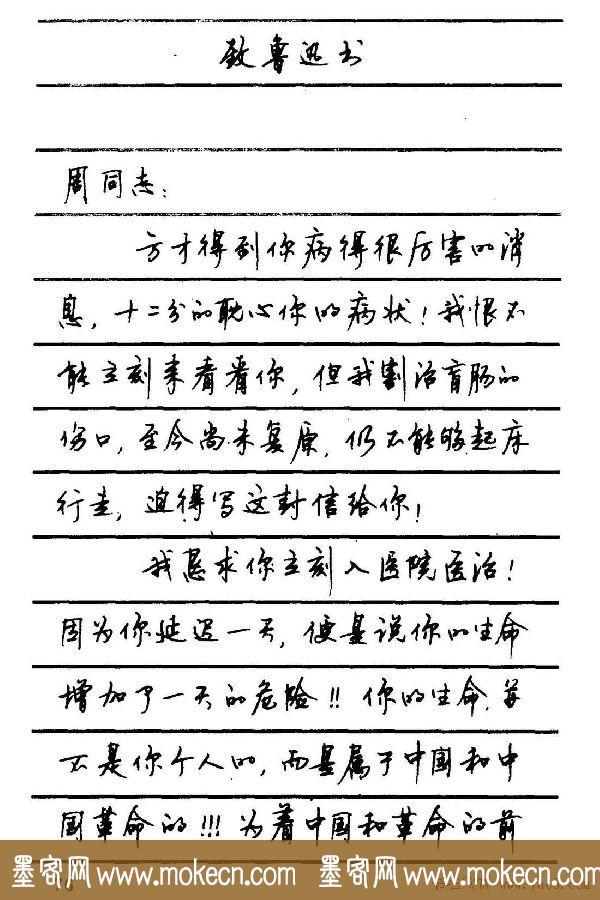 致鲁迅书
周同志：
方才得到你病得很厉害的消
息，十二分的耽心你的病状！我恨不
能立刻来看看你，但我割治盲肠的
伤口，至今尚未复原，仍不能够起床
行走，迫得写这封信给你！
我恳求你立刻入医院医治！
因为你延迟一天，便是说你的生命
增加了一天的危险!! 你的生命，并
不是你个人的，而是属于中国和中
国革命的!!! 为着中国和革命的前
墨客网 www.mokecn.com 墨客网 www.mokecn.com